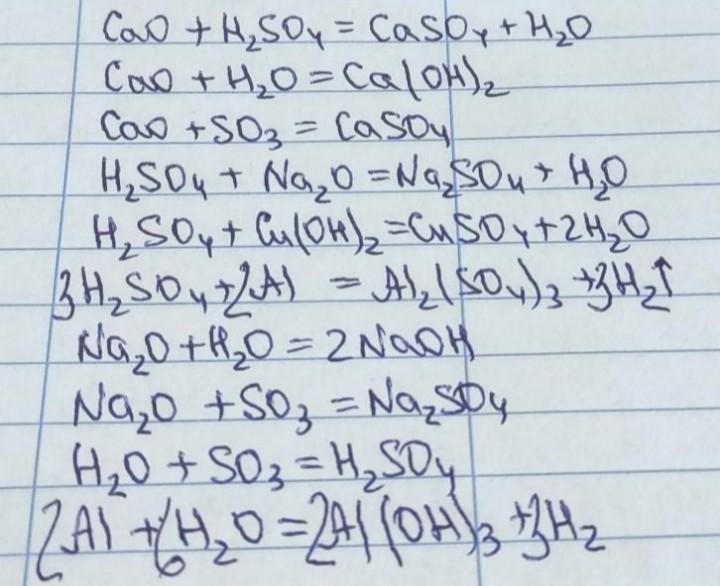 CaO + H₂SO₄ = CaSO₄ + H₂O
CaO + H₂O = Ca(OH)₂
CaO + SO₃ = CaSO₄
H₂SO₄ + Na₂O = Na₂SO₄ + H₂O
H₂SO₄ + Cu(OH)₂ = CuSO₄ + 2H₂O
3H₂SO₄ + 2Al = Al₂(SO₄)₃ + 3H₂↑
Na₂O + H₂O = 2NaOH
Na₂O + SO₃ = Na₂SO₄
H₂O + SO₃ = H₂SO₄
2Al + 6H₂O = 2Al(OH)₃ + 3H₂